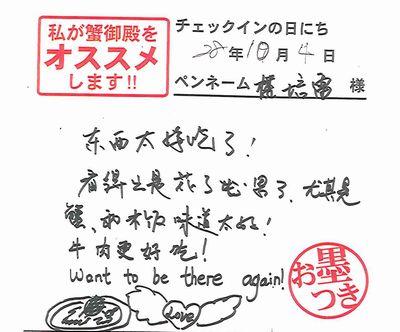 私が蟹御殿を
オススメ
します!!
チェックインの日にち
28年10月4日
ペンネーム 様
东西太好吃了！
看得出是花了心思了，尤其是
蟹，和米饭味道太好！
牛肉更好吃！
Want to be there again!
Love
お墨
つき